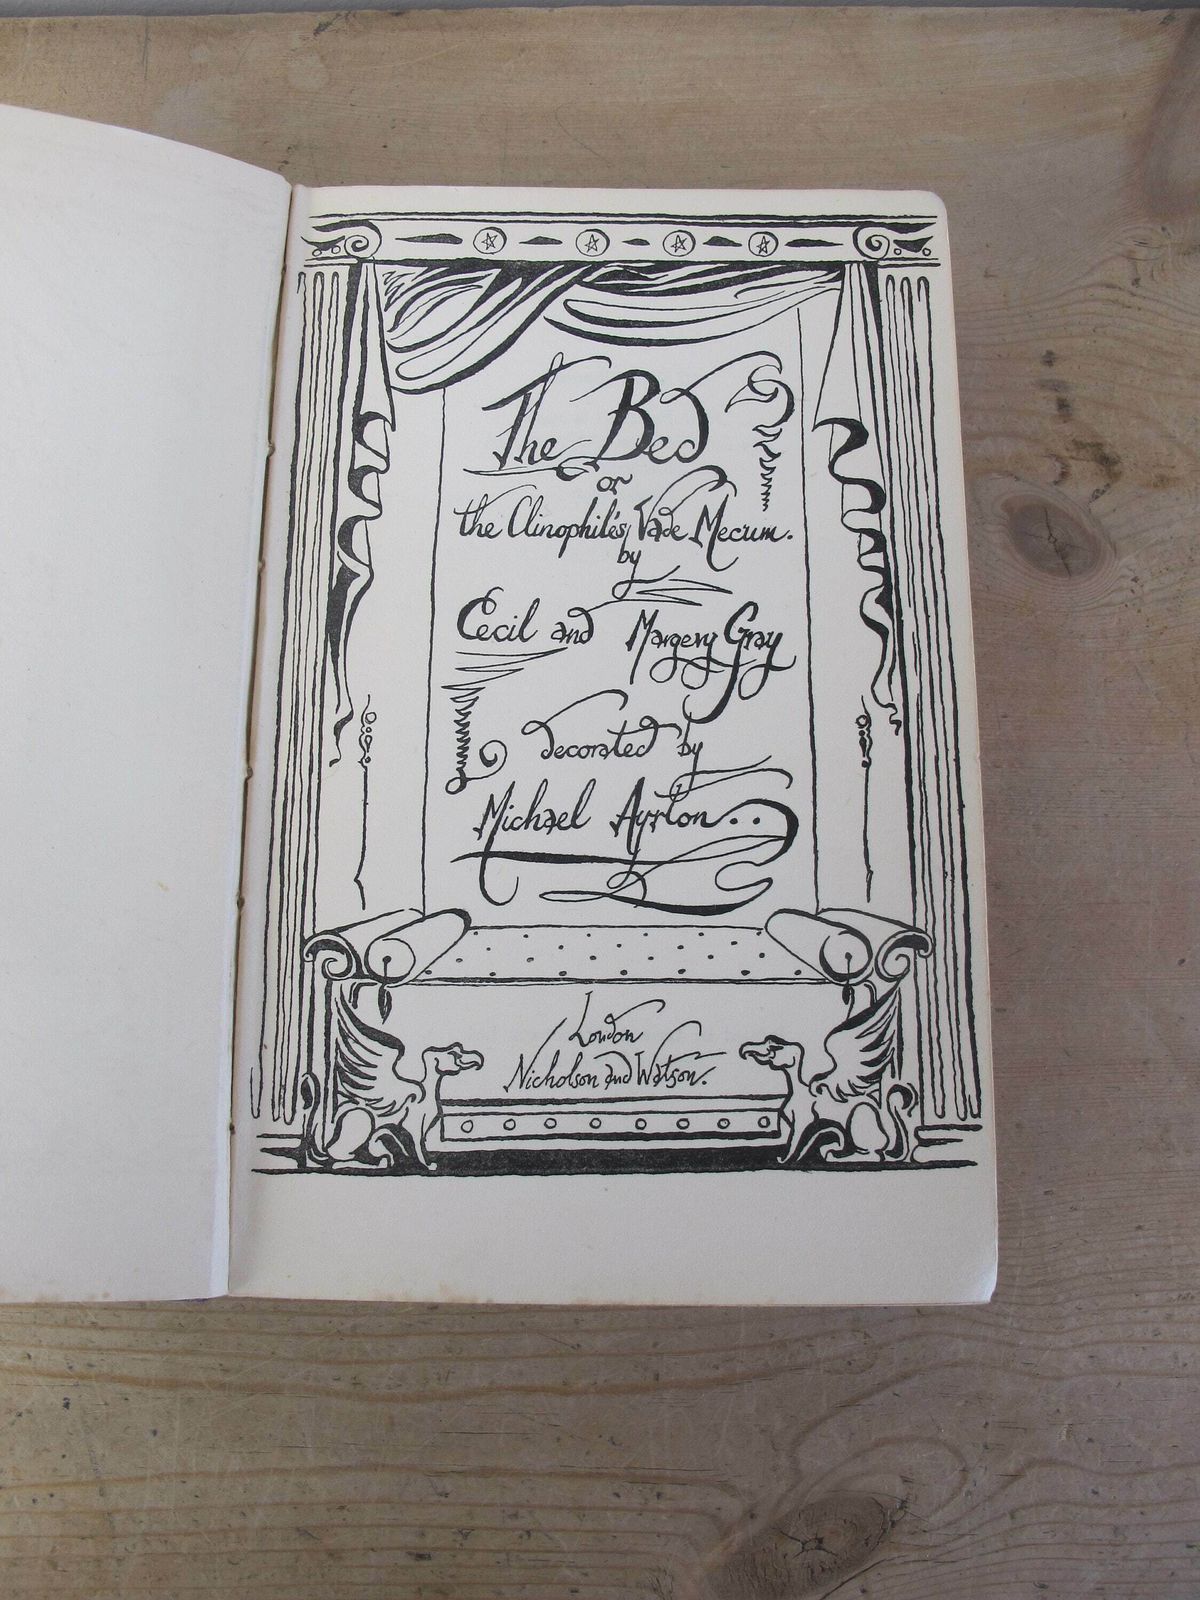 The Bed
or
the Clinophile's Vade Mecum.
by
Cecil and Margery Gray
decorated by
Michael Ayrton..
London
Nicholson and Watson.